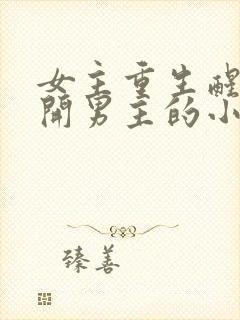 女主重生醒
開男主的小
臻善